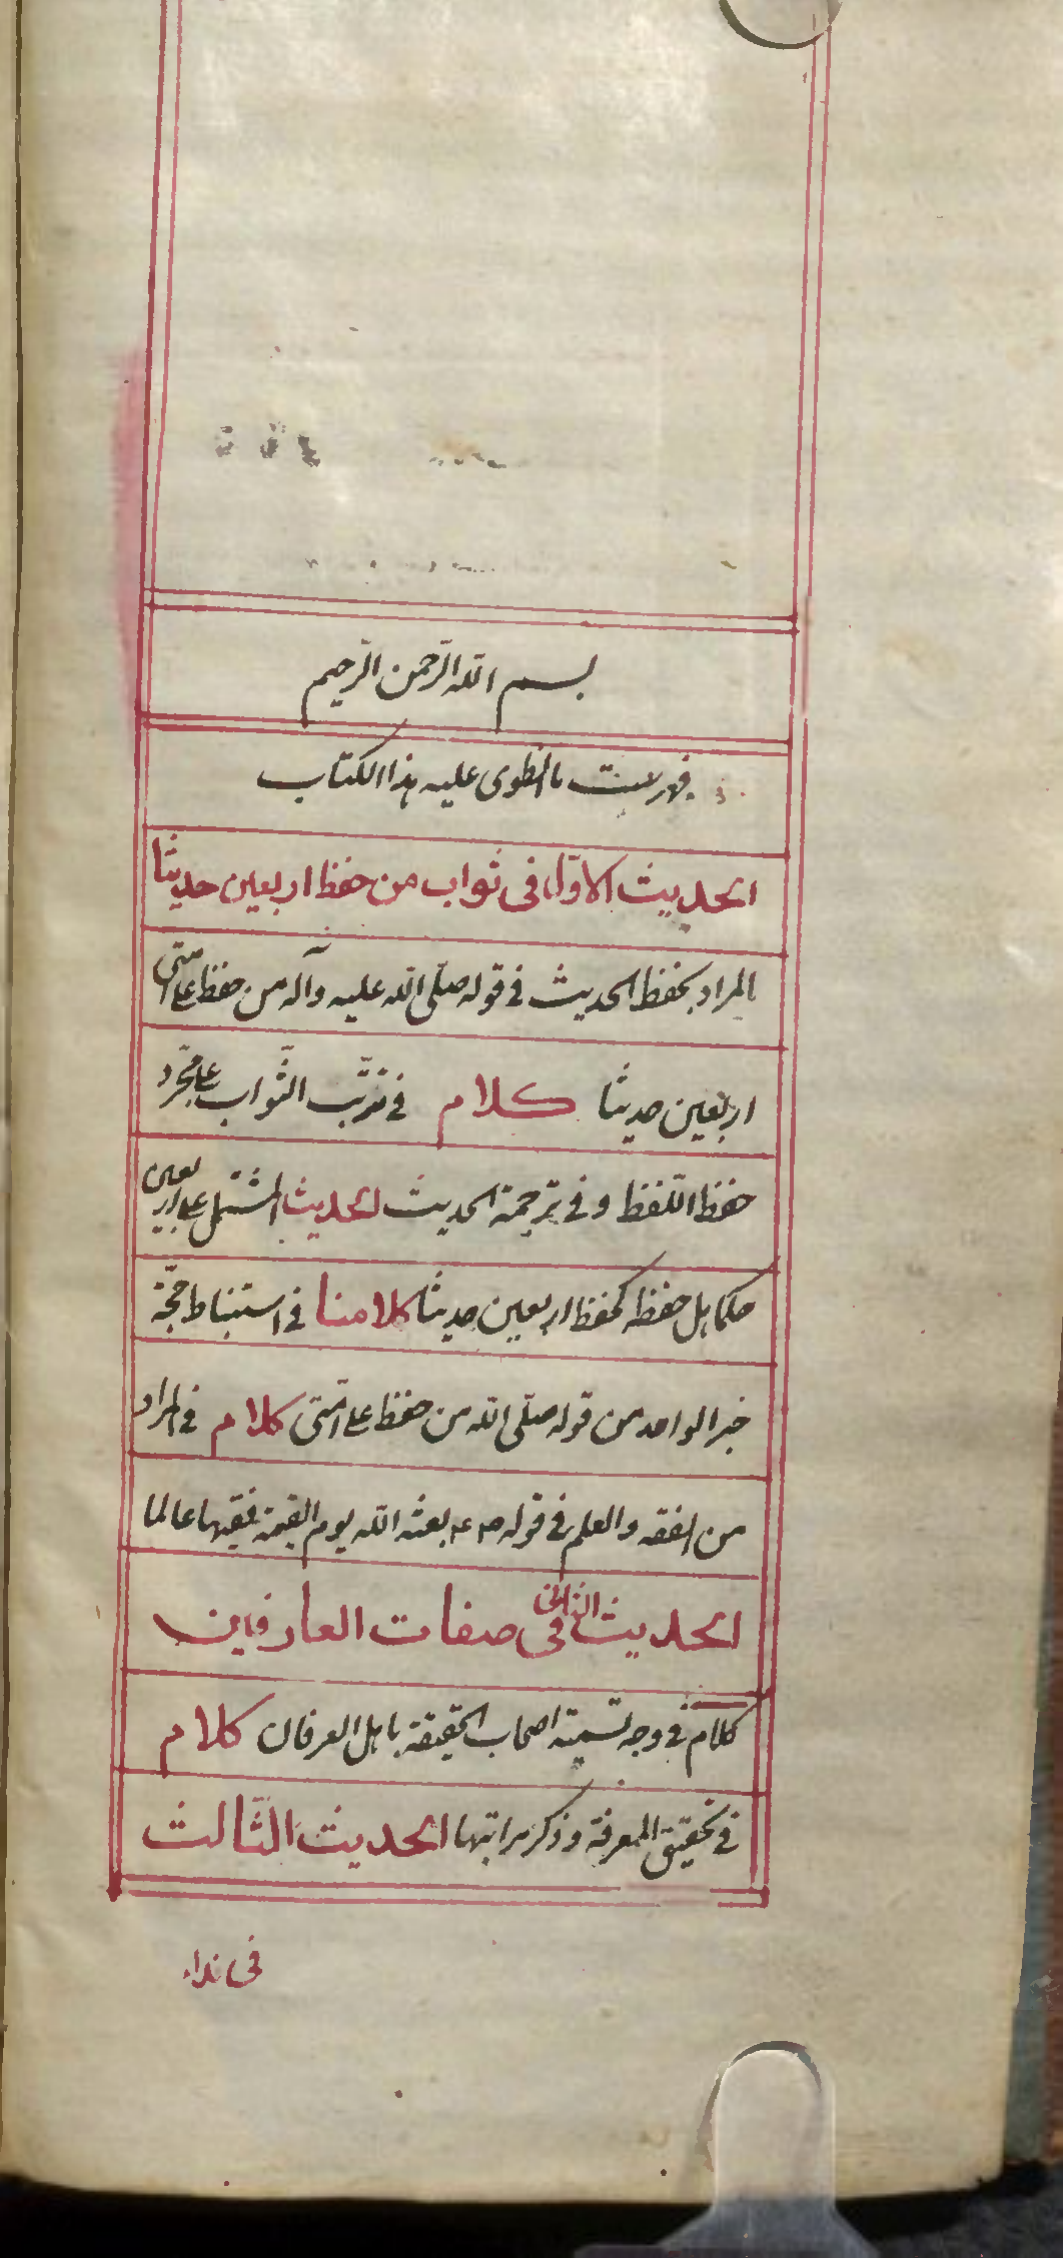 بسم الله الرّحمن الرّحيم
فهرست ما انطوى عليه هذا الكتاب
الحديث الاوّل فى ثواب من حفظ اربعين حديثا
المراد بحفظ الحديث فى قوله صلّى الله عليه وآله من حفظ على امّتى
اربعين حديثا كلام فى ترتّب الثّواب على مجرّد
حفظ اللّفظ و فى ترجمة الحديث الحديث المشتمل على اربعين
حكما هل حفظه كحفظ اربعين حديثا كلامنا فى استنباط حجّة
خبر الواحد من قوله صلّى الله من حفظ على امّتى كلام فى المراد
من الفقه والعلم فى قوله ص ع بعثه الله يوم القيمة فقيها عالما
الحديث الثانى فى صفات العارفين
كلام فى وجه تسمية اصحاب الحقيقة باهل العرفان كلام
فى تحقيق المعرفة وذكر مراتبها الحديث الثّالث
فى نداء